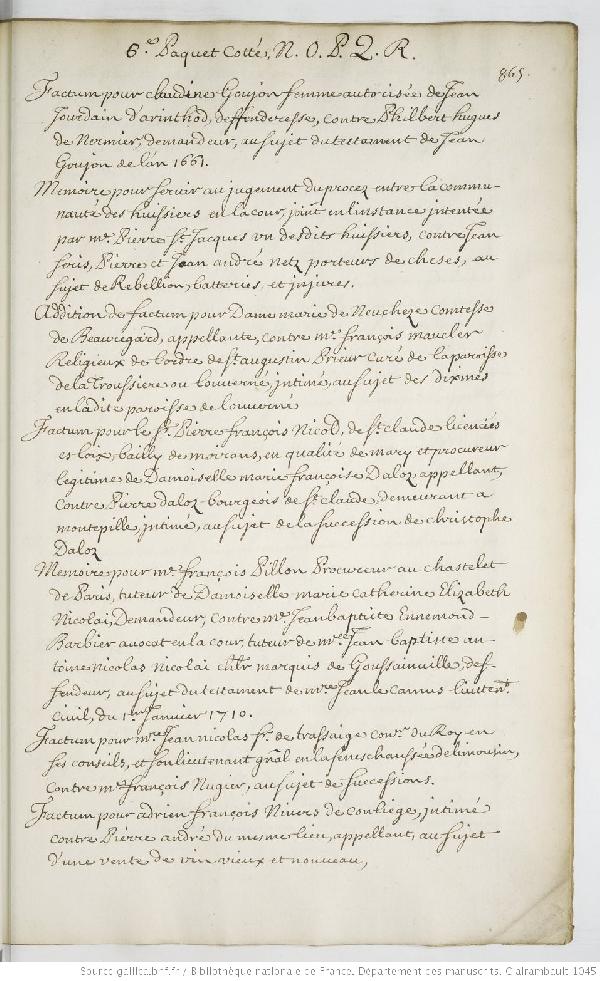 6.º Paquet Cottés, N. O. P. Q. R.
865.
Factum pour claudine Goujon femme autorisée de Jean
Jourdain d'arinthod, deffenderesse, contre Philbert hugues
de Nermier, demandeur, au sujet du testament de Jean
Goujon de l'an 1661.
Memoire pour servir au jugement du procez entre la commu-
nauté des huissiers en la cour, joint en l'instance intentée
par mr. Pierre St. Jacques un desdits huissiers, contre Jean
Pierre et Jean andré Netz porteurs de cheses, au
sujet de Rebellion, batteries, et injures.
Addition de factum pour Dame marie de Neucheze Comtesse
de Beauregard, appellante, contre mre. françois mauclerc
Religieux de l'ordre de St. augustin Prieur Curé de la paroisse
de la Troussiere ou Louverné, intimé, au sujet des dixmes
en ladite paroisse de Louverné
Factum pour le Sr. Pierre françois Nicod, de St. claude licenciés
es loix, bailly des moirans, en qualité de mary et procureur
legitime de Damoiselle marie françoise Daloz appellant,
contre Pierre daloz bourgeois de St. claude, demeurant a
montepille, intimé, au sujet de la succession de christophe
Daloz
Memoire pour me. françois Pillon Procureur au chastelet
de Paris, tuteur de Damoiselle marie Catherine Elizabeth
Nicolai, Demandeur, contre me. Jean baptiste Ennemond
Barbier avocat en la cour, tuteur de mre. Jean baptiste an-
toine nicolas nicolai chlr. marquis de Goussainville, def-
fendeur, au sujet du testament de mre. Jean le Camus lieutent.
Civil, du 1er Janvier 1710.
Factum pour mre Jean nicolas fr. de trassaige conr. du Roy en
ses conseils, et son lieutenant gnãl en la seneschaussée de limousin,
contre mr. françois Nugier, au sujet de successions.
Factum pour adrien françois Nivers de conliége, intimé
contre Pierre andré du mesme lieu, appellant, au sujet
d'une vente de vin vieux et nouveau,
Source gallica.bnf.fr / Bibliothèque nationale de France. Département des manuscrits. Clairambault 1045